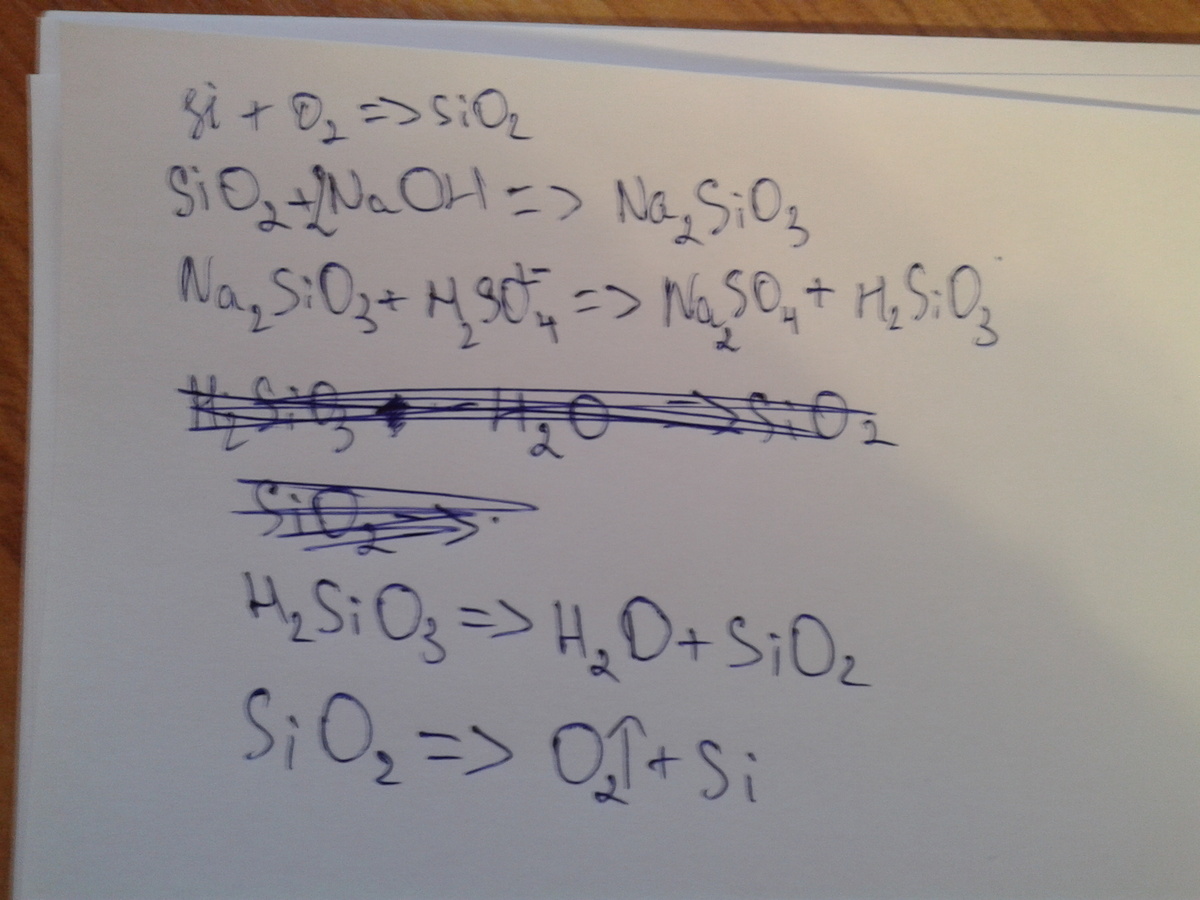 Si + O₂ => SiO₂
SiO₂ + 2NaOH => Na₂SiO₃
Na₂SiO₃ + H₂SO₄ => Na₂SO₄ + H₂SiO₃
H₂SiO₃ - H₂O -> SiO₂
SiO₂ ->
H₂SiO₃ => H₂O + SiO₂
SiO₂ => O₂↑ + Si